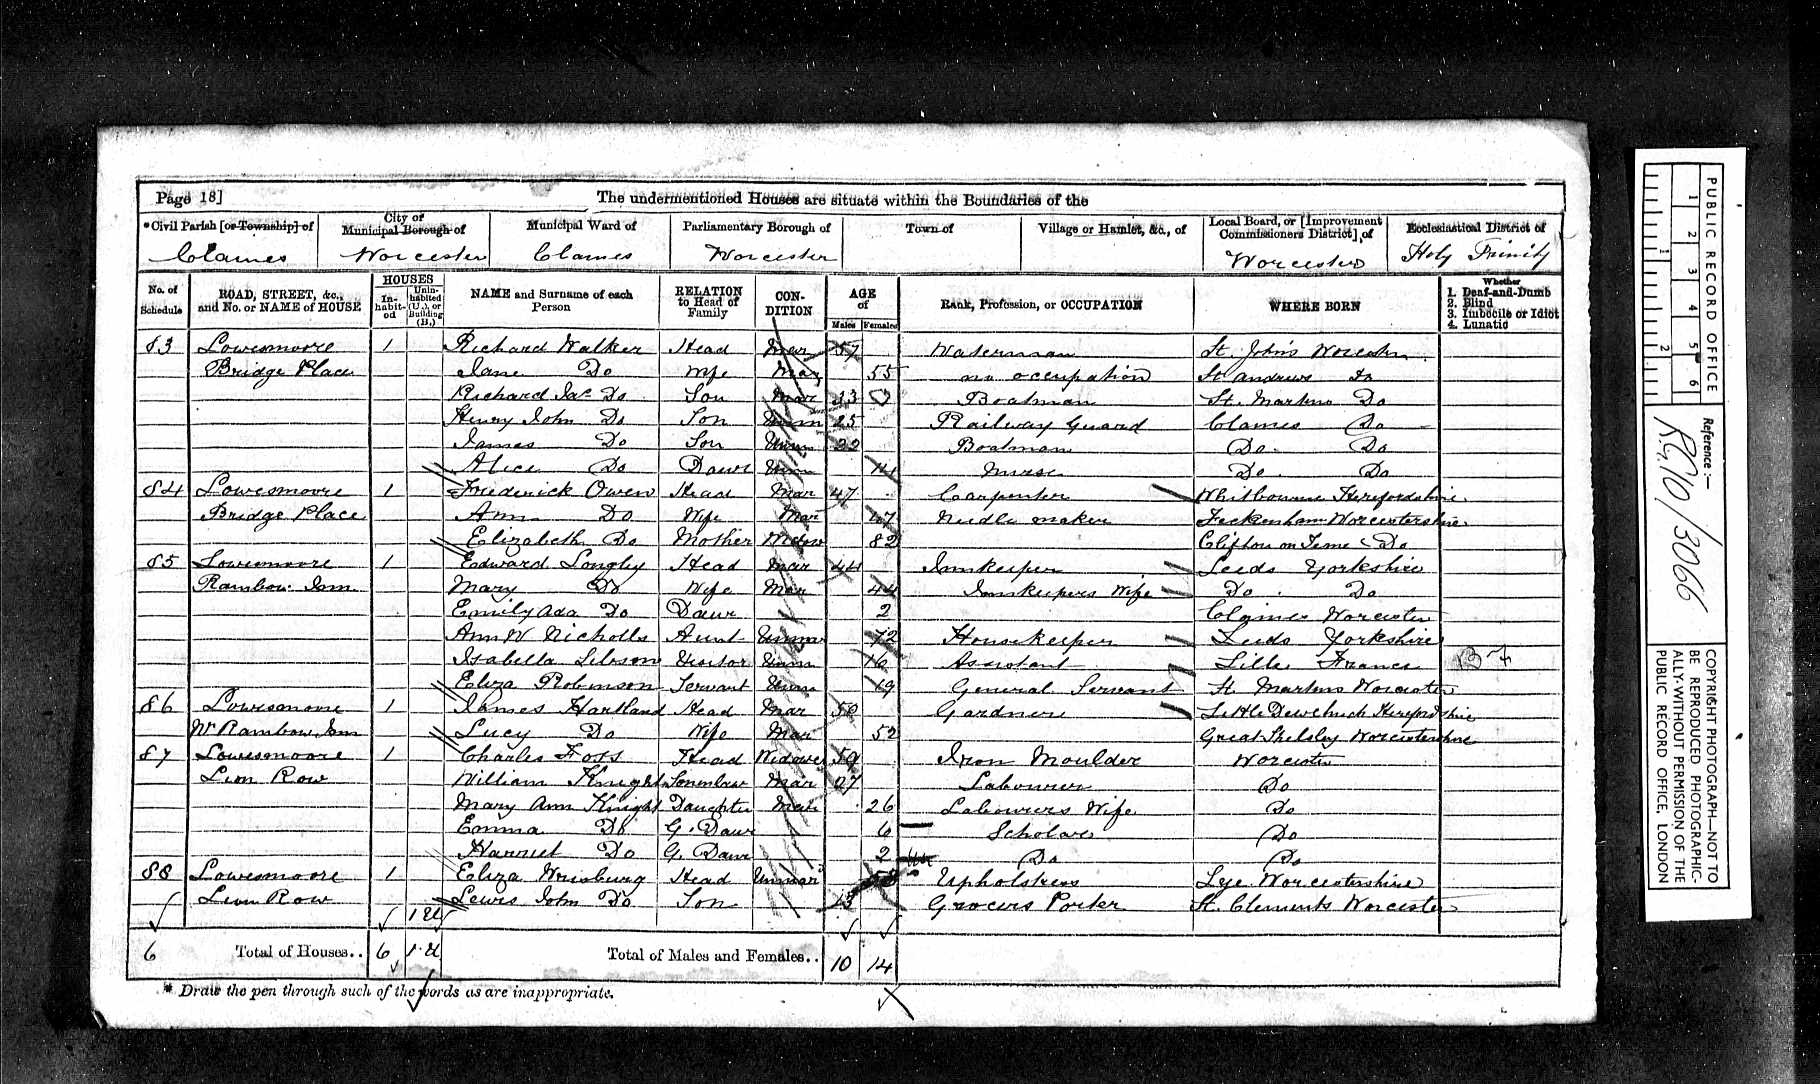 Page 18]
The undermentioned Houses are situate within the Boundaries of the
*Civil Parish [or Township] of
City of Municipal Borough of
Municipal Ward of
Parliamentary Borough of
Town of
Village or Hamlet, &c., of
Local Board, or [Improvement Commissioners District] of
Ecclesiastical District of
Claines Worcester Claines Worcester Worcester Holy Trinity
No. of Schedule
ROAD, STREET, &c., and No. or NAME of HOUSE
HOUSES
In-habit-ed
Unin-habited (U.), or Building (B.)
NAME and Surname of each Person
RELATION to Head of Family
CON-DITION
AGE of
Males Females
Rank, Profession, or OCCUPATION
WHERE BORN
Whether
1. Deaf-and-Dumb
2. Blind
3. Imbecile or Idiot
4. Lunatic
83 Lowesmoore 1 Richard Walker Head Mar 57 Waterman St. John's Worcester
Bridge Place Jane Do Wife Mar 55 no occupation St Andrews Do
Richard Jas Do Son Mar 33 Boatman St. Martins Do
Henry John Do Son Unm 25 Railway Guard Claines Do
James Do Son Unm 22 Boatman Do. Do
Alice Do Daur Unm 14 Nurse Do. Do
84 Lowesmoore 1 Frederick Owen Head Mar 47 Carpenter Whitbourne Herefordshire
Bridge Place Ann Do Wife Mar 47 Needle maker Feckenham Worcestershire
Elizabeth Do Mother Widow 82 Clifton on Teme Do
85 Lowesmoore 1 Edward Longley Head Mar 44 Innkeeper Leeds Yorkshire
Rainbow Inn Mary Do Wife Mar 44 Innkeepers Wife Do. Do
Emily Ada Do Daur 2 Claines Worcester
Ann W Nicholls Aunt Unmar 72 Housekeeper Leeds Yorkshire
Isabella Visitor Unm 16 Assistant Lille France
Eliza Robinson Servant Unm 19 General Servant St Martins Worcester
86 Lowesmoore 1 James Hartland Head Mar 50 Gardner Little Dewchurch Herefordshire
Nr Rainbow Inn Lucy Do Wife Mar 52 Great Shelsley Worcestershire
87 Lowesmoore 1 Charles Foss Head Widower 59 Iron Moulder Worcester
Lion Row William Knight Soninlaw Mar 27 Labourer Do
Mary Ann Knight Daughter Mar 26 Labourers Wife Do
Emma Do G. Daur 6 Scholar Do
Harriet Do G. Daur 2 Do Do
88 Lowesmoore 1 Eliza Head Unmar Upholstress Lye Worcestershire
Lion Row Lewis John Do Son 13 Grocers Porter St. Clements Worcester
1 U
6 Total of Houses.. 6 1 U Total of Males and Females.. 10 14
* Draw the pen through such of the words as are inappropriate.
PUBLIC RECORD OFFICE
1 2 3 4 5 6
1 2
Reference:-
R.G. 10/3066
COPYRIGHT PHOTOGRAPH—NOT TO
BE REPRODUCED PHOTOGRAPHIC-
ALLY WITHOUT PERMISSION OF THE
PUBLIC RECORD OFFICE, LONDON